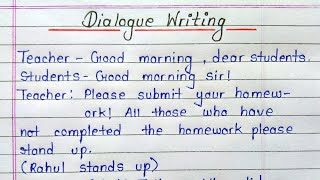 Dialogue Writing
Teacher - Good morning , dear students.
Students - Good morning sir!
Teacher: Please submit your homew-
ork! All those who have
not completed the homework please
stand up.
(Rahul stands up)